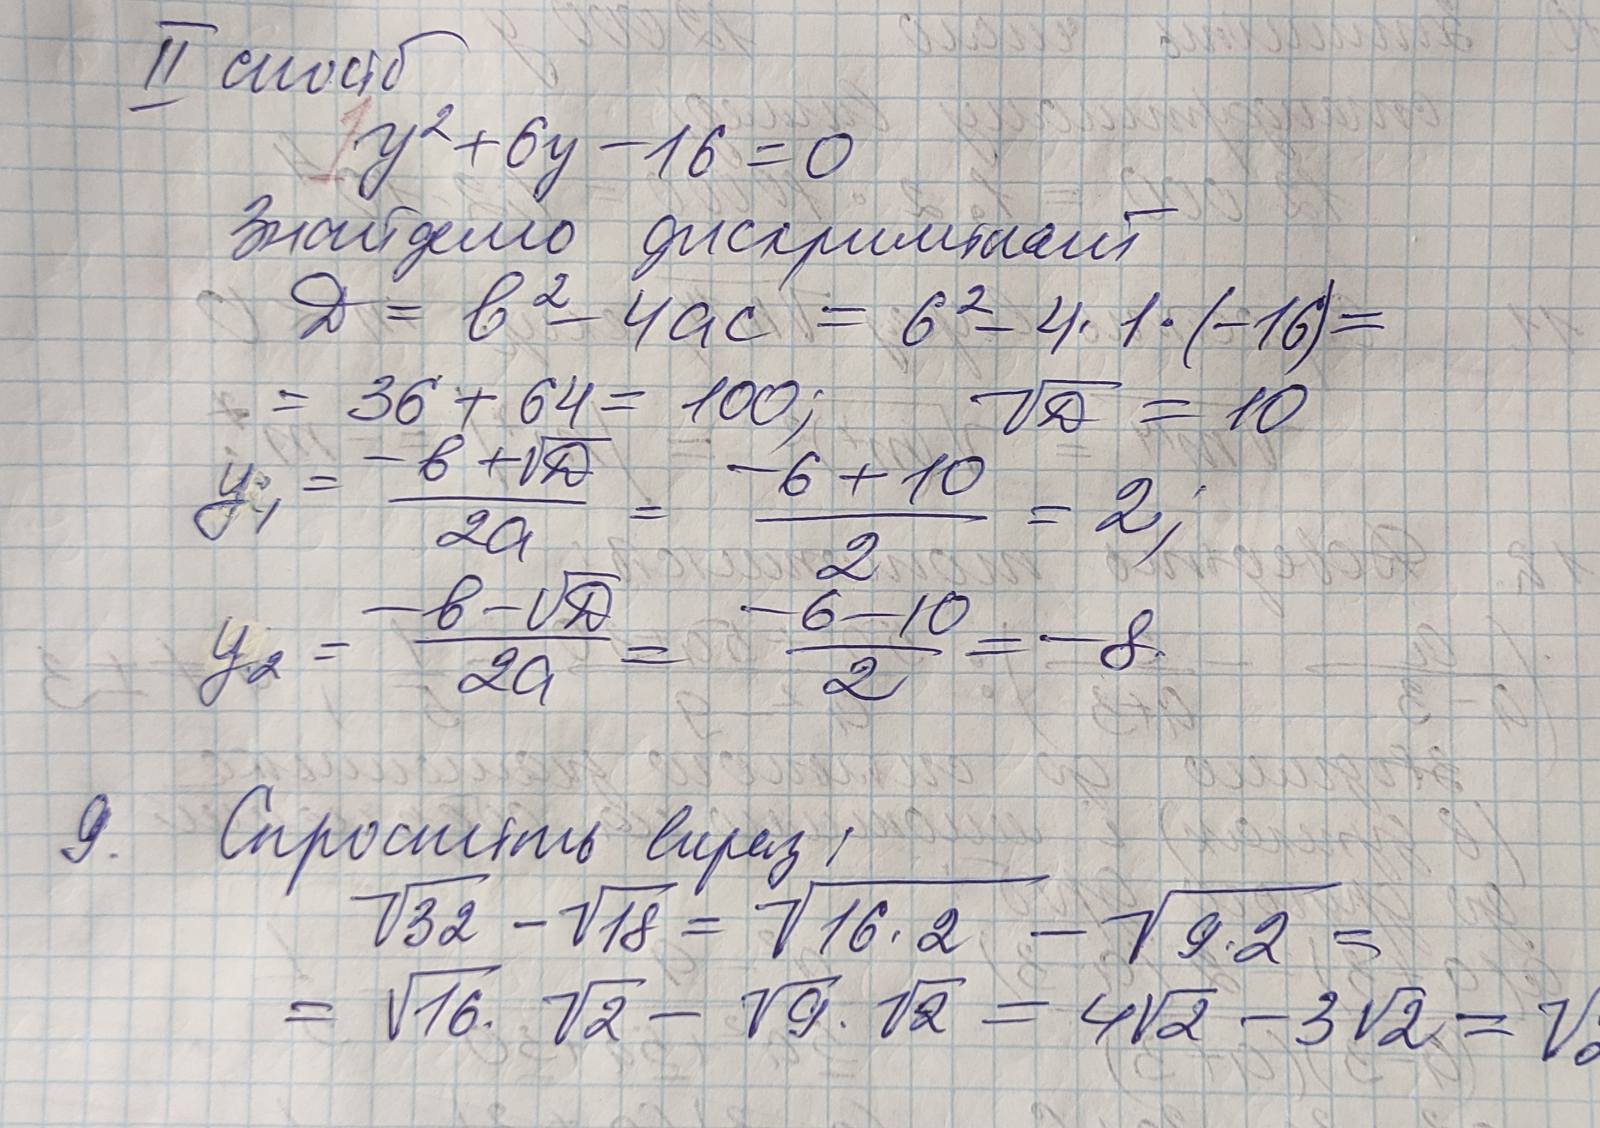 II спосіб
1y² + 6y - 16 = 0
Знайдемо дискримінант
D = b² - 4ac = 6² - 4·1·(-16) =
= 36 + 64 = 100; √D = 10
y₁ = (-b + √D)/(2a) = (-6 + 10)/2 = 2;
y₂ = (-b - √D)/(2a) = (-6 - 10)/2 = -8.
9. Спростіть вираз:
√32 - √18 = √(16·2) - √(9·2) =
= √16 · √2 - √9 · √2 = 4√2 - 3√2 = √2